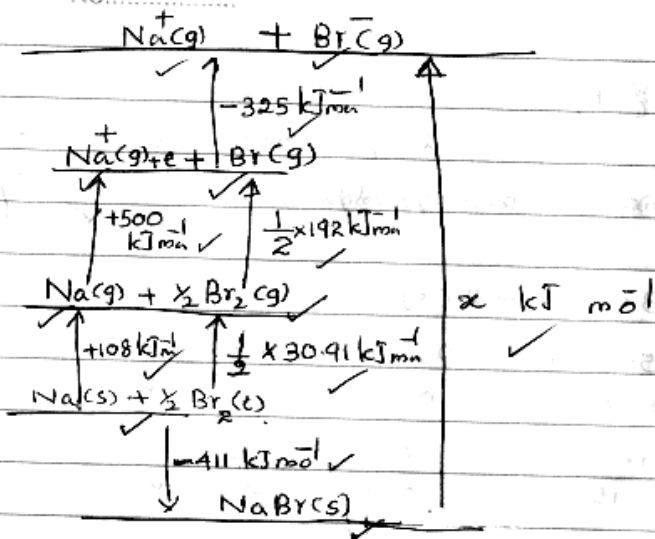 Na⁺(g) + Br⁻(g)
-325 kJmol⁻¹
Na⁺(g)+e + Br(g)
+500 kJmol⁻¹ 1/2 ×192 kJmol⁻¹
Na(g) + ½ Br₂(g)
x kJ mol⁻¹
+108 kJm⁻¹ 1/2 × 30.91 kJmol⁻¹
Na(s) + ½ Br₂(l)
-411 kJ mol⁻¹
NaBr(s)